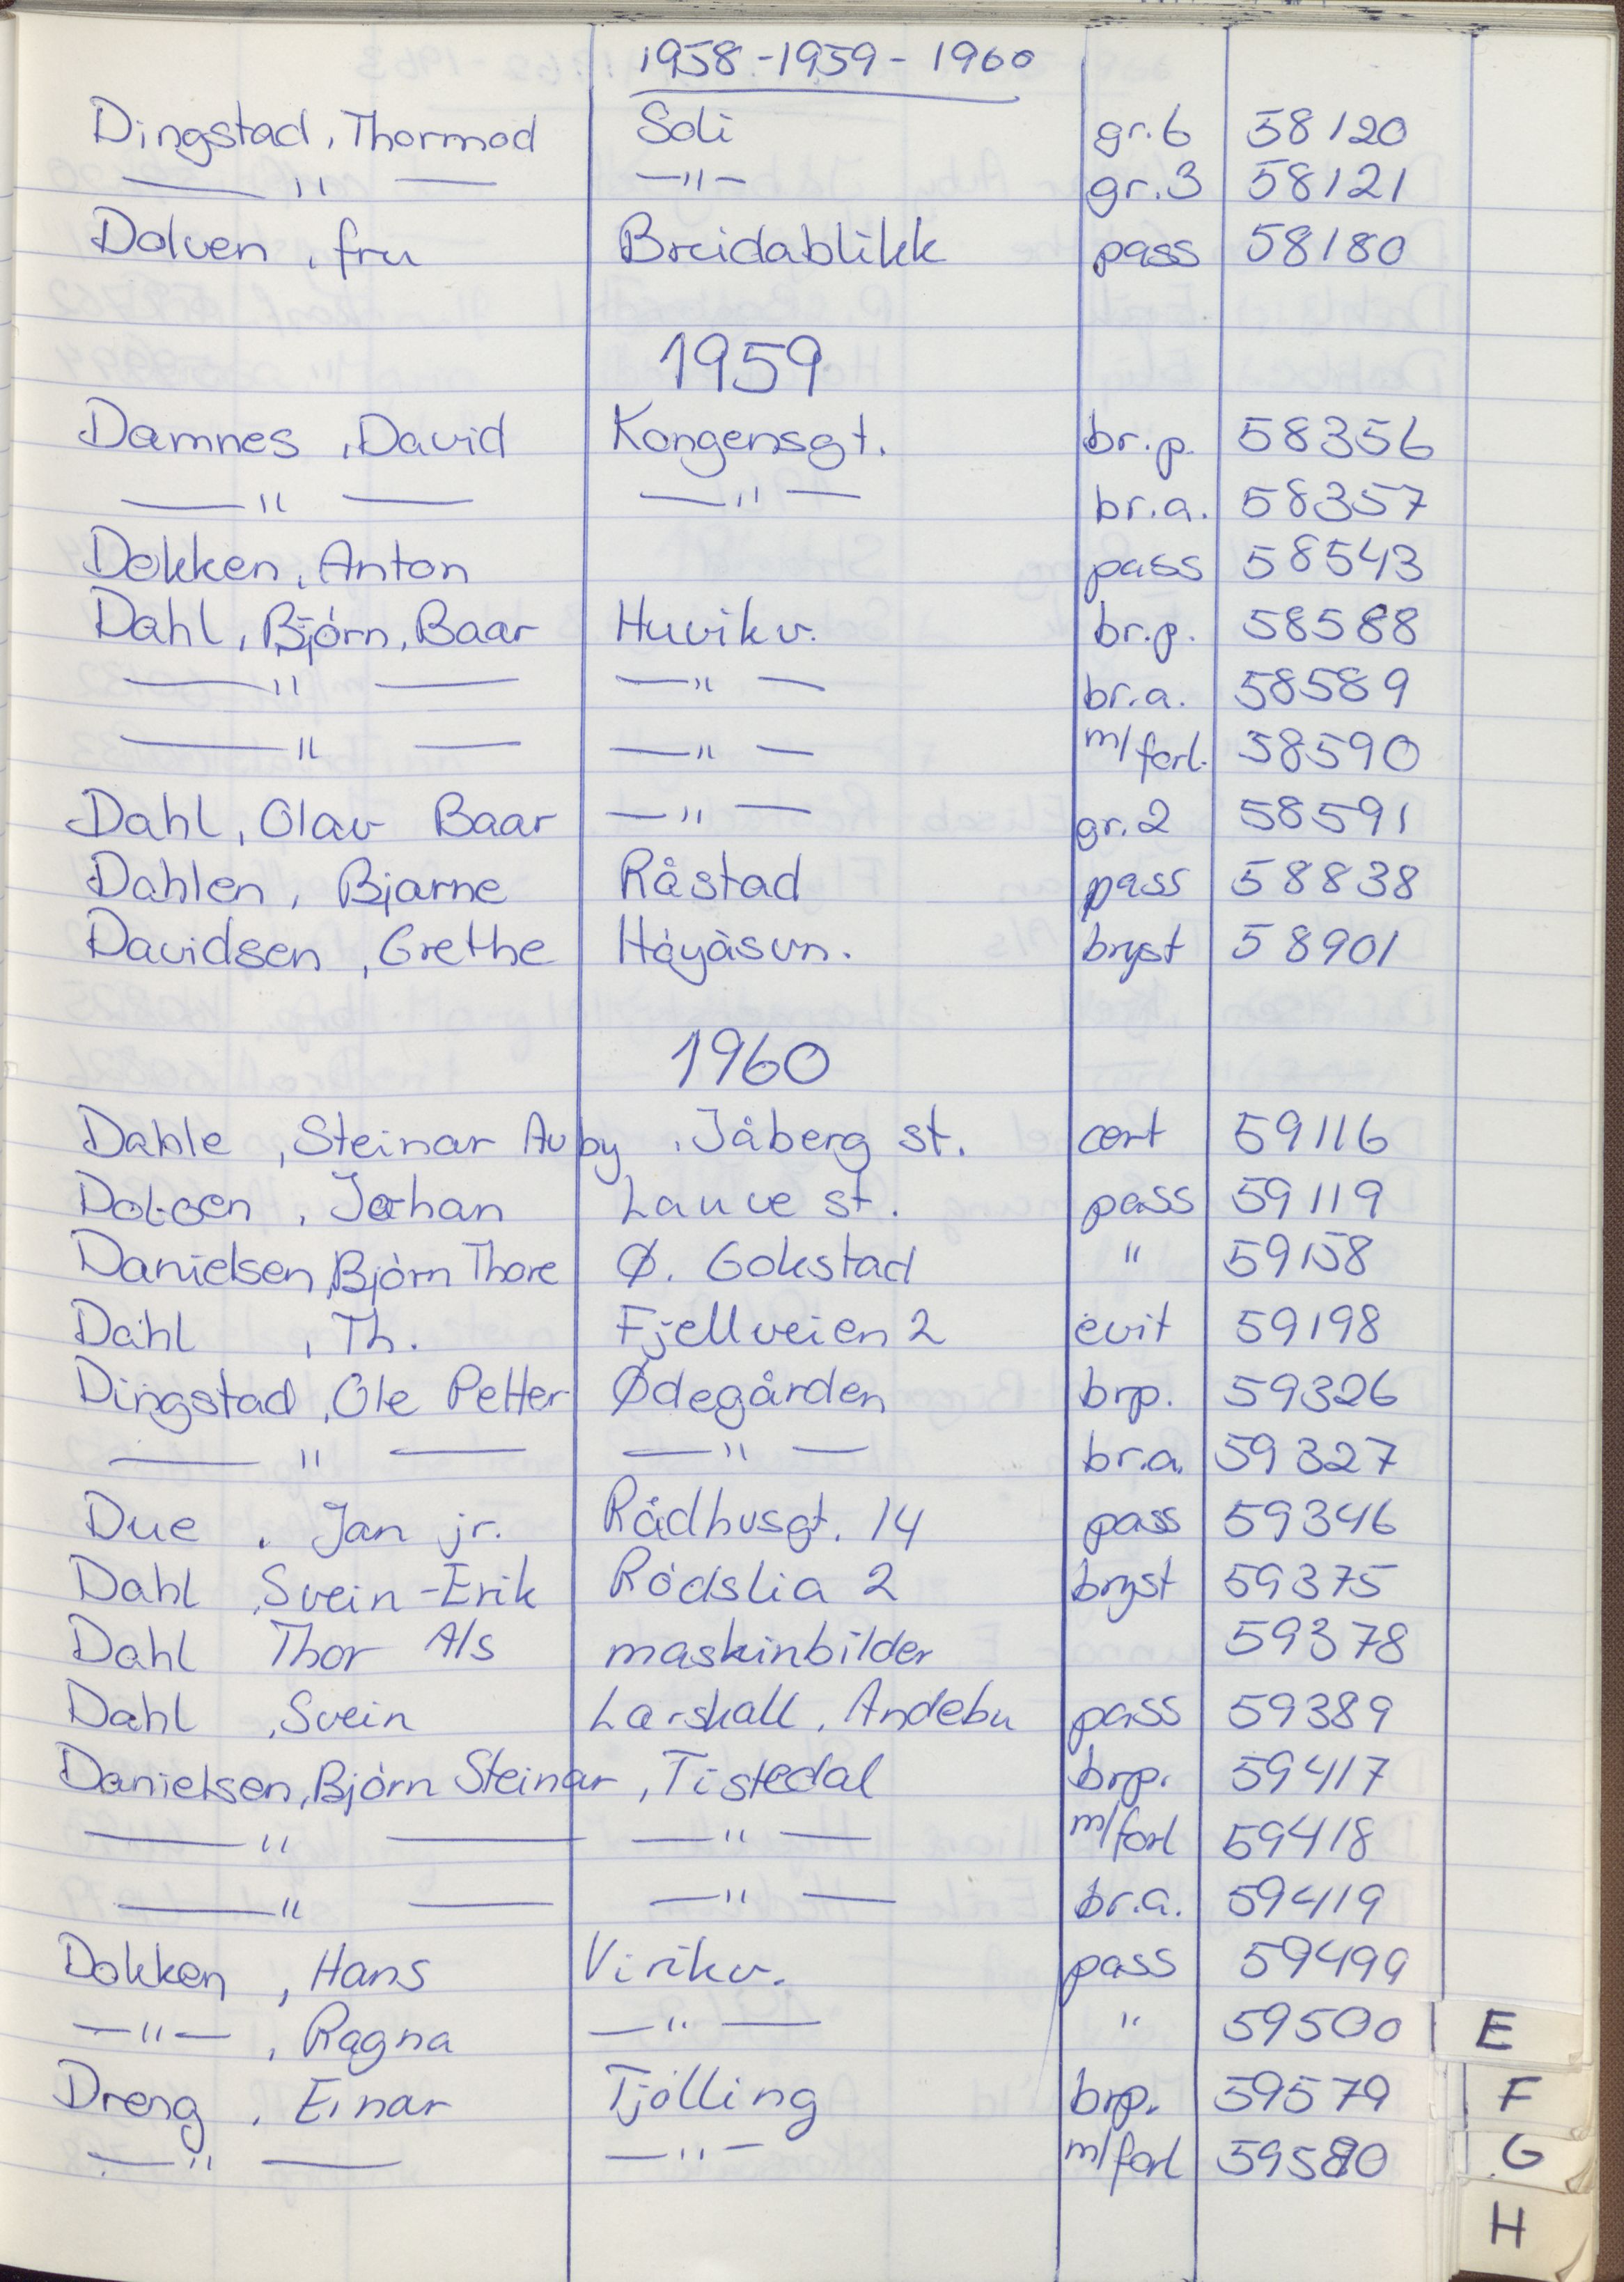 1958-1959-1960
Dingstad, Thormod Soli gr.6 58120
— " — —"— gr.3 58121
Dolven, fru Breidablikk pass 58180
1959
Damnes, David Kongensgt. br.p. 58356
— " — — " — br.a. 58357
Dokken, Anton pass 58543
Dahl, Bjørn, Baar Huvikv. br.p. 58588
— " — — " — br.a. 58589
— " — — " — m/forl. 58590
Dahl, Olav Baar — " — gr.2 58591
Dahlen, Bjarne Råstad pass 58838
Davidsen, Grethe Høyåsvn. bryst 58901
1960
Dahle, Steinar Auby, Jåberg st. cert 59116
Johan Lauve st. pass 59119
Danielsen, Bjørn Thore Ø. Gokstad " 59158
Dahl, Th. Fjellveien 2 evit 59198
Dingstad, Ole Petter Ødegården brp. 59326
— " — — " — br.a. 59327
Due, Jan jr. Rådhusgt. 14 pass 59346
Dahl, Svein-Erik Rødslia 2 bryst 59375
Dahl Thor A/s maskinbilder 59378
Dahl, Svein Larskall, Andebu pass 59389
Danielsen, Bjørn Steinar, Tistedal brp. 59417
— " — — " — m/forl 59418
— " — — " — br.a. 59419
Dokken, Hans Virikv. pass 59499
—"—, Ragna — " — " 59500
E
Dreng, Einar Tjølling brp. 59579
F
— " — —"— m/forl 59580
G
H